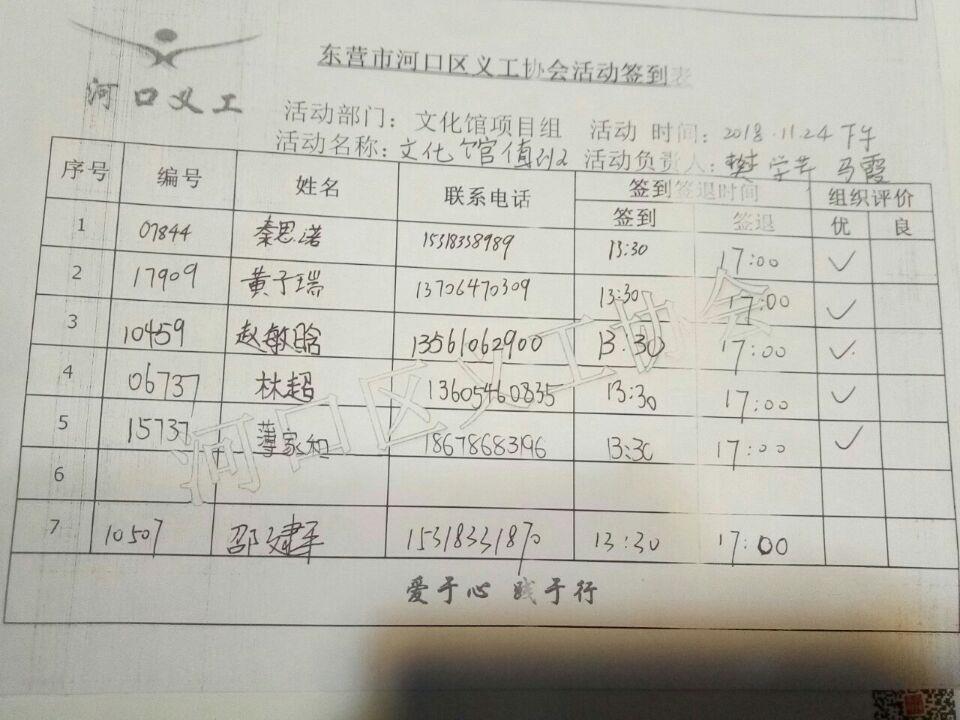 东营市河口区义工协会活动签到表
河口义工
活动部门：文化馆项目组 活动 时间：2018.11.24下午
活动名称：文化馆值 活动负责人： 马霞
序号 编号 姓名 联系电话 签到签退时间 组织评价
签到 签退 优 良
1 07844 秦思诺 15318338989 13:30 17:00 ✓
2 17909 黄子瑞 13706470309 13:30 17:00 ✓
3 10459 赵敏晗 13561062900 13:30 17:00 ✓
4 06737 林超 13605460835 13:30 17:00 ✓
5 15737 薄家和 18678683196 13:30 17:00 ✓
6
7 10507 邵建军 15318331870 13:30 17:00
爱于心 践于行
河口区义工协会